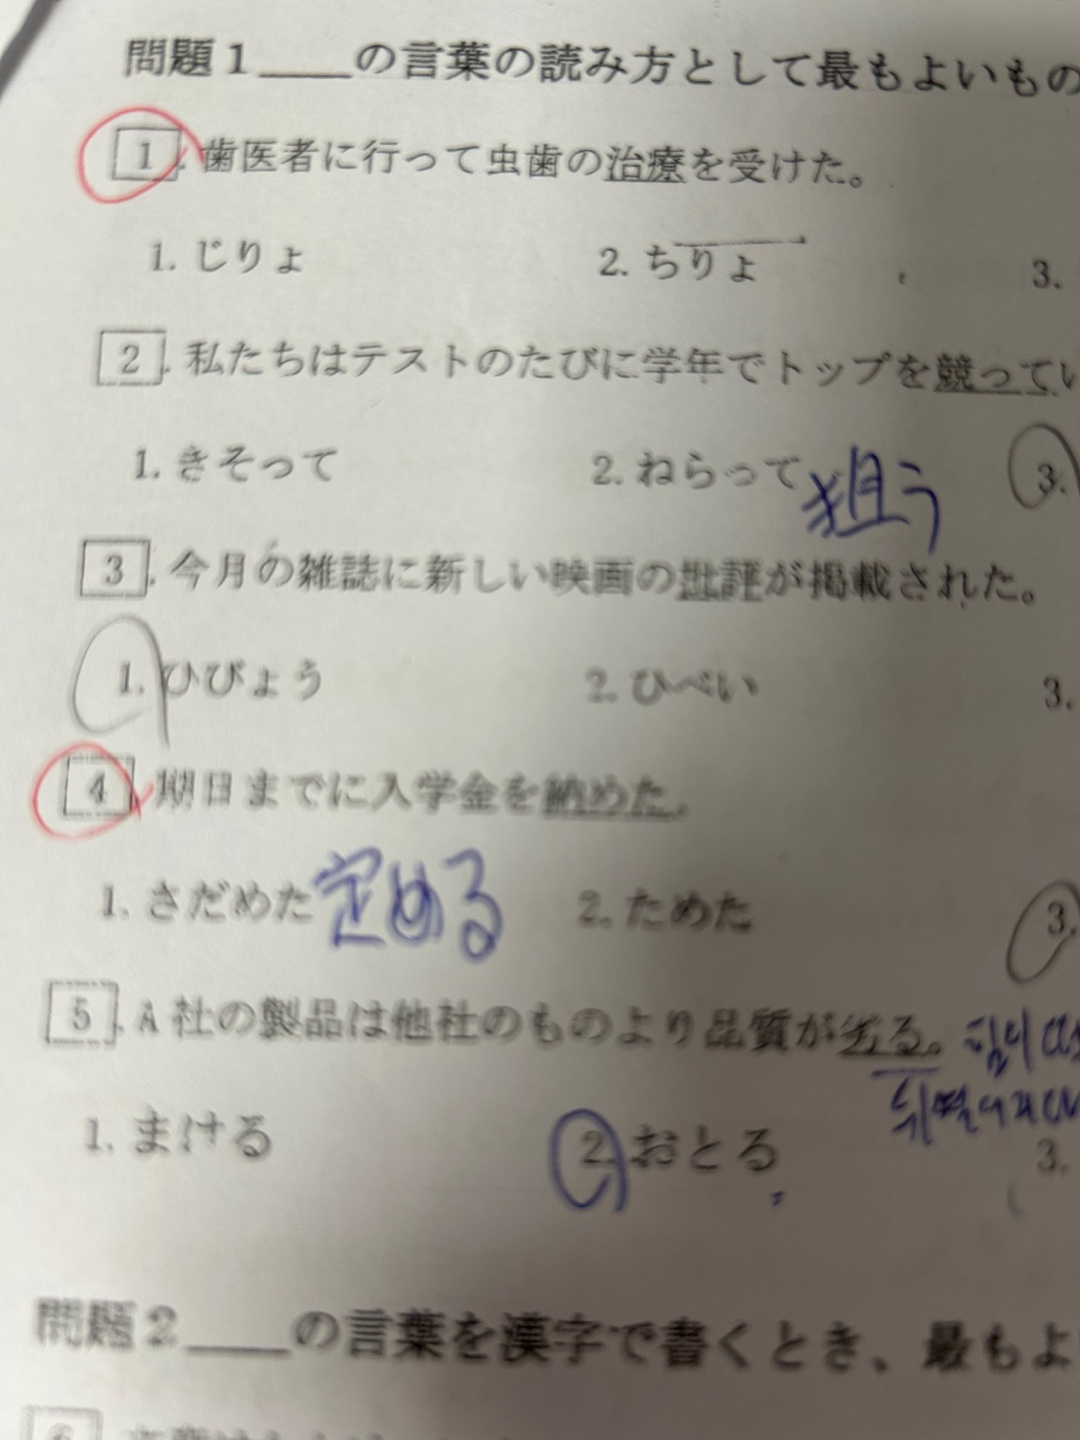 問題1____の言葉の読み方として最もよいもの
1. 歯医者に行って虫歯の治療を受けた。
1. じりょ 2. ちりょ 3.
2. 私たちはテストのたびに学年でトップを競ってい
1. きそって 2. ねらって 狙う 3.
3. 今月の雑誌に新しい映画の批評が掲載された。
1. ひびょう 2. ひべい 3.
4. 期日までに入学金を納めた。
1. さだめた 定める 2. ためた 3.
5. A社の製品は他社のものより品質が劣る。
1. まける 2. おとる 3.
問題2____の言葉を漢字で書くとき、最もよ
6